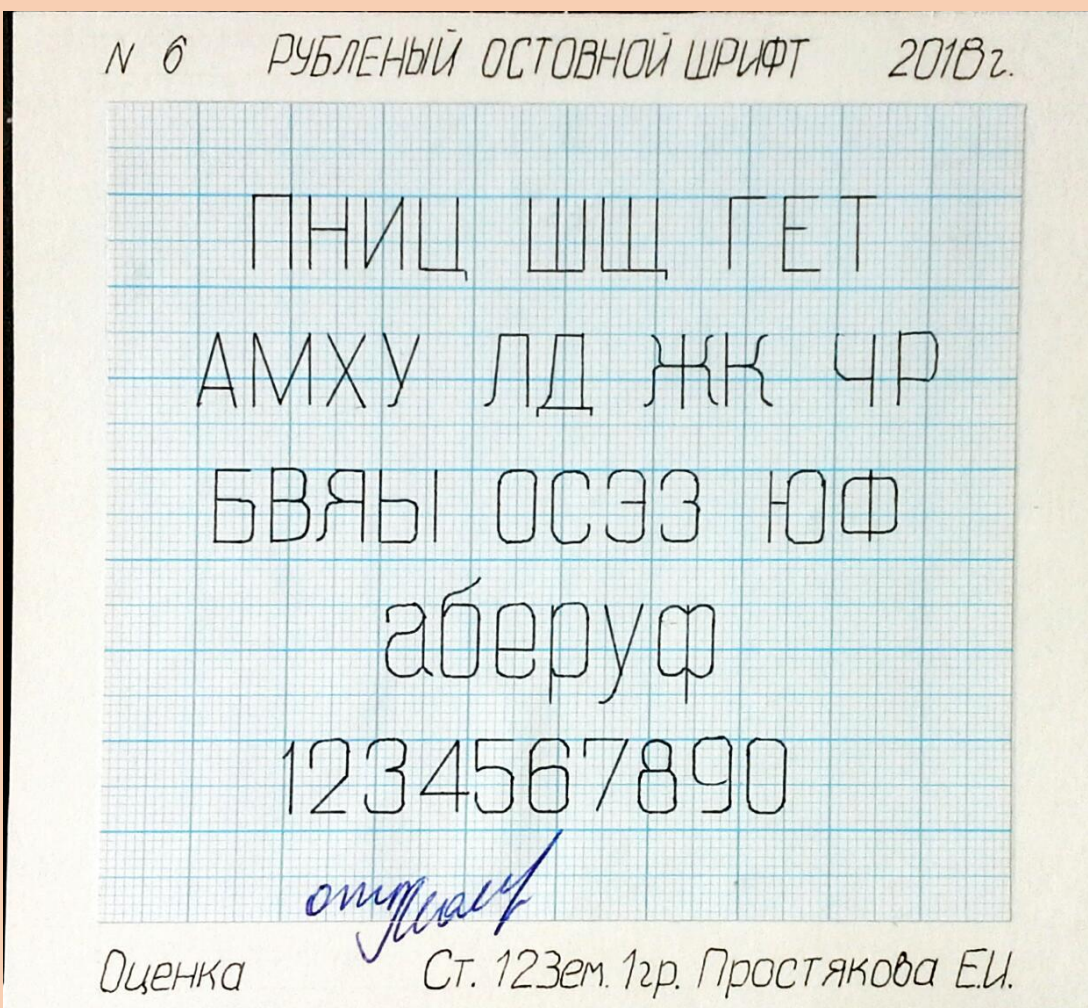 N 6 РУБЛЕНЫЙ ОСТОВНОЙ ШРИФТ 2018г.
ПНИЦ ШЩ ГЕТ
АМХУ ЛД ЖК ЧР
БВЯЫ ОСЭЗ ЮФ
аберуф
1234567890
Оценка Ст. 123ем. 1гр. Простякова Е.И.